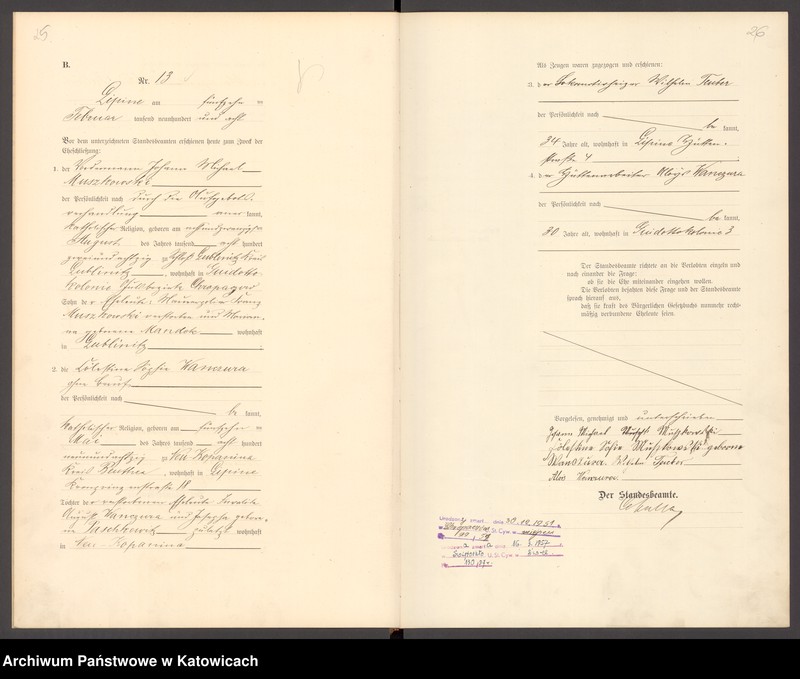 25
B.
Nr. 13
Lipine am fünfzehn ten
Februar tausend neunhundert und acht
Vor dem unterzeichneten Standesbeamten erschienen heute zum Zweck der
Eheschließung:
1. der Johann Michael
Muszkowski
der Persönlichkeit nach durch die Aufgebots-
verhandlung kannt,
katholischer Religion, geboren am achtundzwanzigsten
August des Jahres tausend acht hundert
zweiundachtzig zu Schloß Lublinitz Kreis
Lublinitz, wohnhaft in Guidotto-
kolonie Chropaczow
Sohn der Eheleute: Franz
Muszkowski verstorben und
geborene Mandok wohnhaft
in Lublinitz
2. die Cölestine Sophie Wanczura
ohne Beruf
der Persönlichkeit nach
be kannt,
katholischer Religion, geboren am fünfzehn ten
Mai des Jahres tausend acht hundert
neunundachtzig zu Neu Kopanina
Kreis Beuthen, wohnhaft in Lipine
18
Tochter der verstorbenen Eheleute Invalide
August Wanczura und Josepha gebore-
ne zuletzt wohnhaft
in Neu-Kopanina
26
Als Zeugen waren zugezogen und erschienen:
3. der Wilhelm Tauber
der Persönlichkeit nach
be kannt,
34 Jahre alt, wohnhaft in Lipine Hütten-
straße 4
4. der Hüttenarbeiter Aloys Wanczura
der Persönlichkeit nach
be kannt,
30 Jahre alt, wohnhaft in Guidottokolonie 3
Der Standesbeamte richtete an die Verlobten einzeln und
nach einander die Frage:
ob sie die Ehe miteinander eingehen wollen.
Die Verlobten bejahten diese Frage und der Standesbeamte
sprach hierauf aus,
daß sie kraft des Bürgerlichen Gesetzbuchs nunmehr recht-
mäßig verbundene Eheleute seien.
Vorgelesen, genehmigt und unterschrieben
Johann Michael Muszkowski
Cölestine Sofie Muszkowski geborene
Wanczura. Wilhelm Tauber
Alois Wanczura.
Der Standesbeamte.
zmarł dnia
U.S.C. w
Archiwum Państwowe w Katowicach